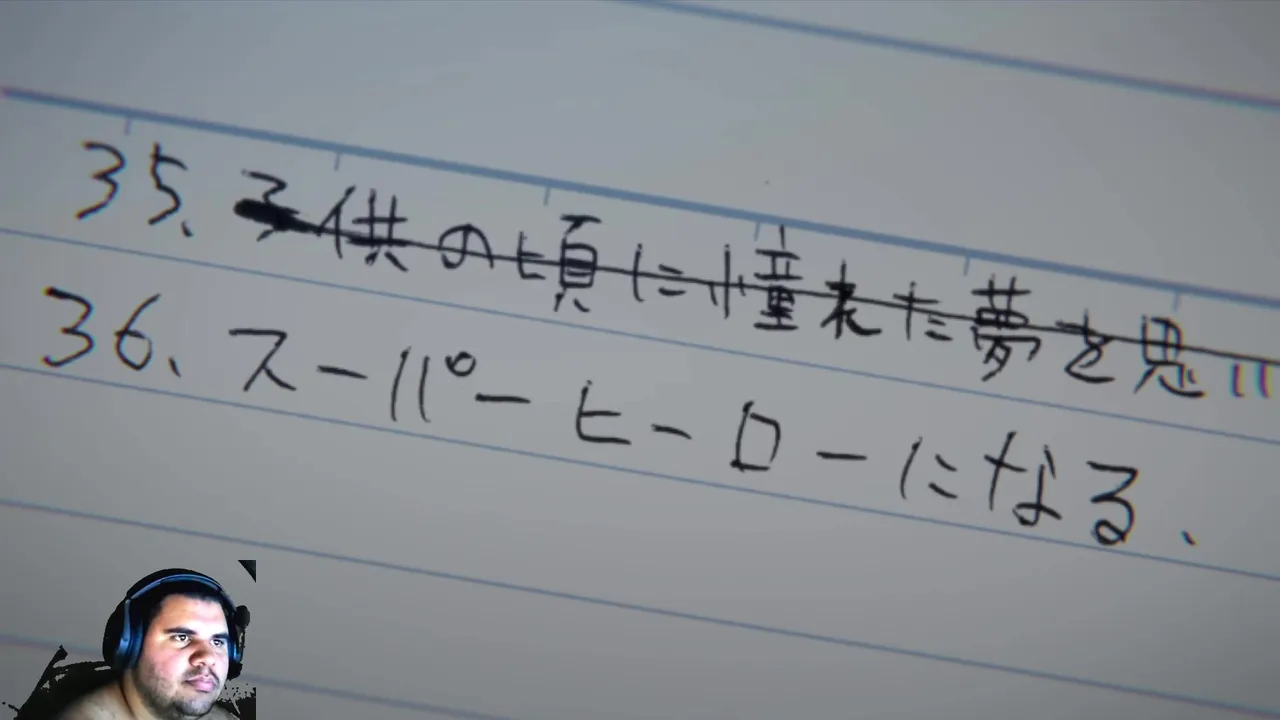 35、子供の頃に憧れた夢を思い
36、スーパーヒーローになる、